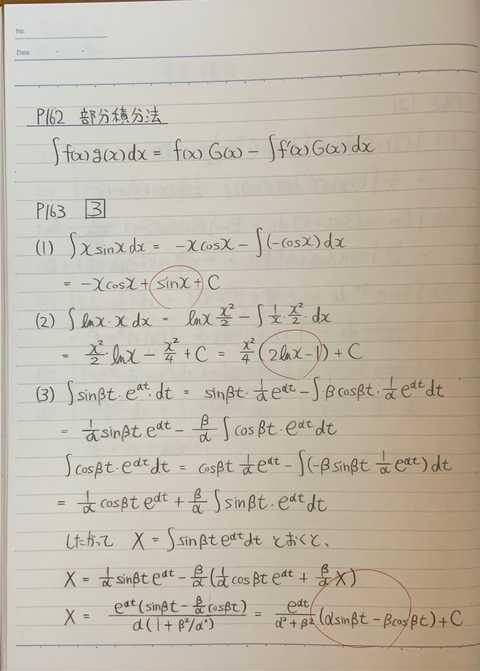 No.
Date
P162 部分積分法
∫f(x)g(x)dx = f(x)G(x) - ∫f'(x)G(x)dx
P163 3
(1) ∫x sinx dx = -x cosx - ∫(-cosx)dx
= -x cosx + sinx + C
(2) ∫lnx・x dx = lnx x²/2 - ∫1/x・x²/2・dx
= x²/2・lnx - x²/4 + C = x²/4(2lnx-1) + C
(3) ∫sinβt・e^αt・dt = sinβt・1/α e^αt - ∫βcosβt・1/α e^αt dt
= 1/α sinβt e^αt - β/α ∫cosβt・e^αt dt
∫cosβt・e^αt dt = cosβt 1/α e^αt - ∫(-βsinβt 1/α e^αt)dt
= 1/α cosβt e^αt + β/α ∫sinβt・e^αt dt
したがって X = ∫sinβt e^αt dt とおくと、
X = 1/α sinβt e^αt - β/α(1/α cosβt e^αt + β/α X)
X = e^αt(sinβt - β/α cosβt)/α(1+β²/α²) = e^αt/α²+β²(αsinβt - βcosβt) + C